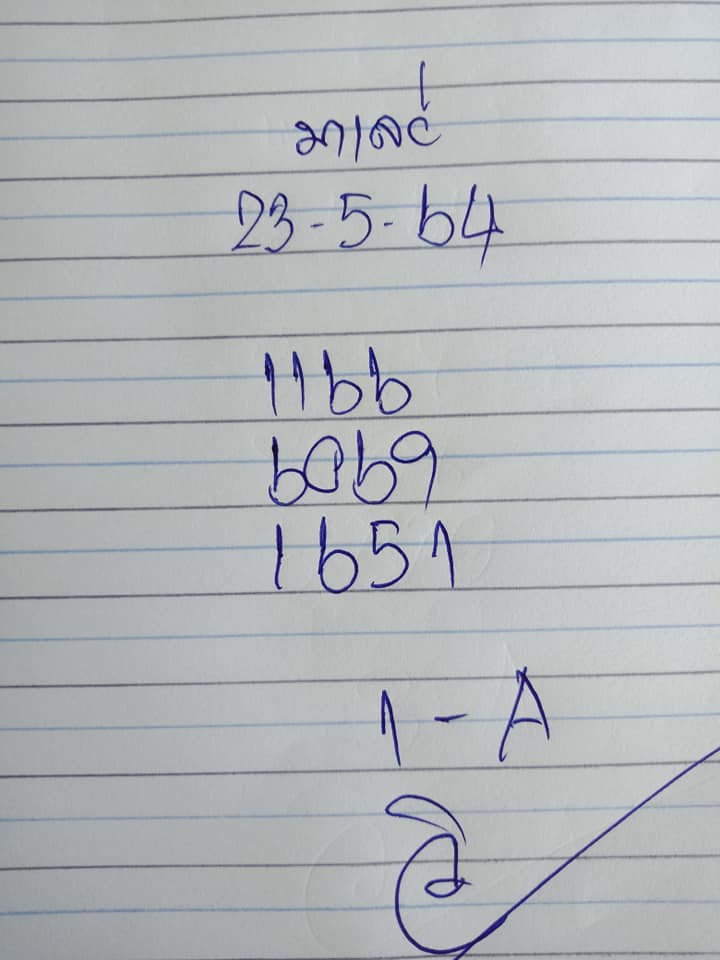 มาเลย์
23-5-64
1166
6069
1651
1-A